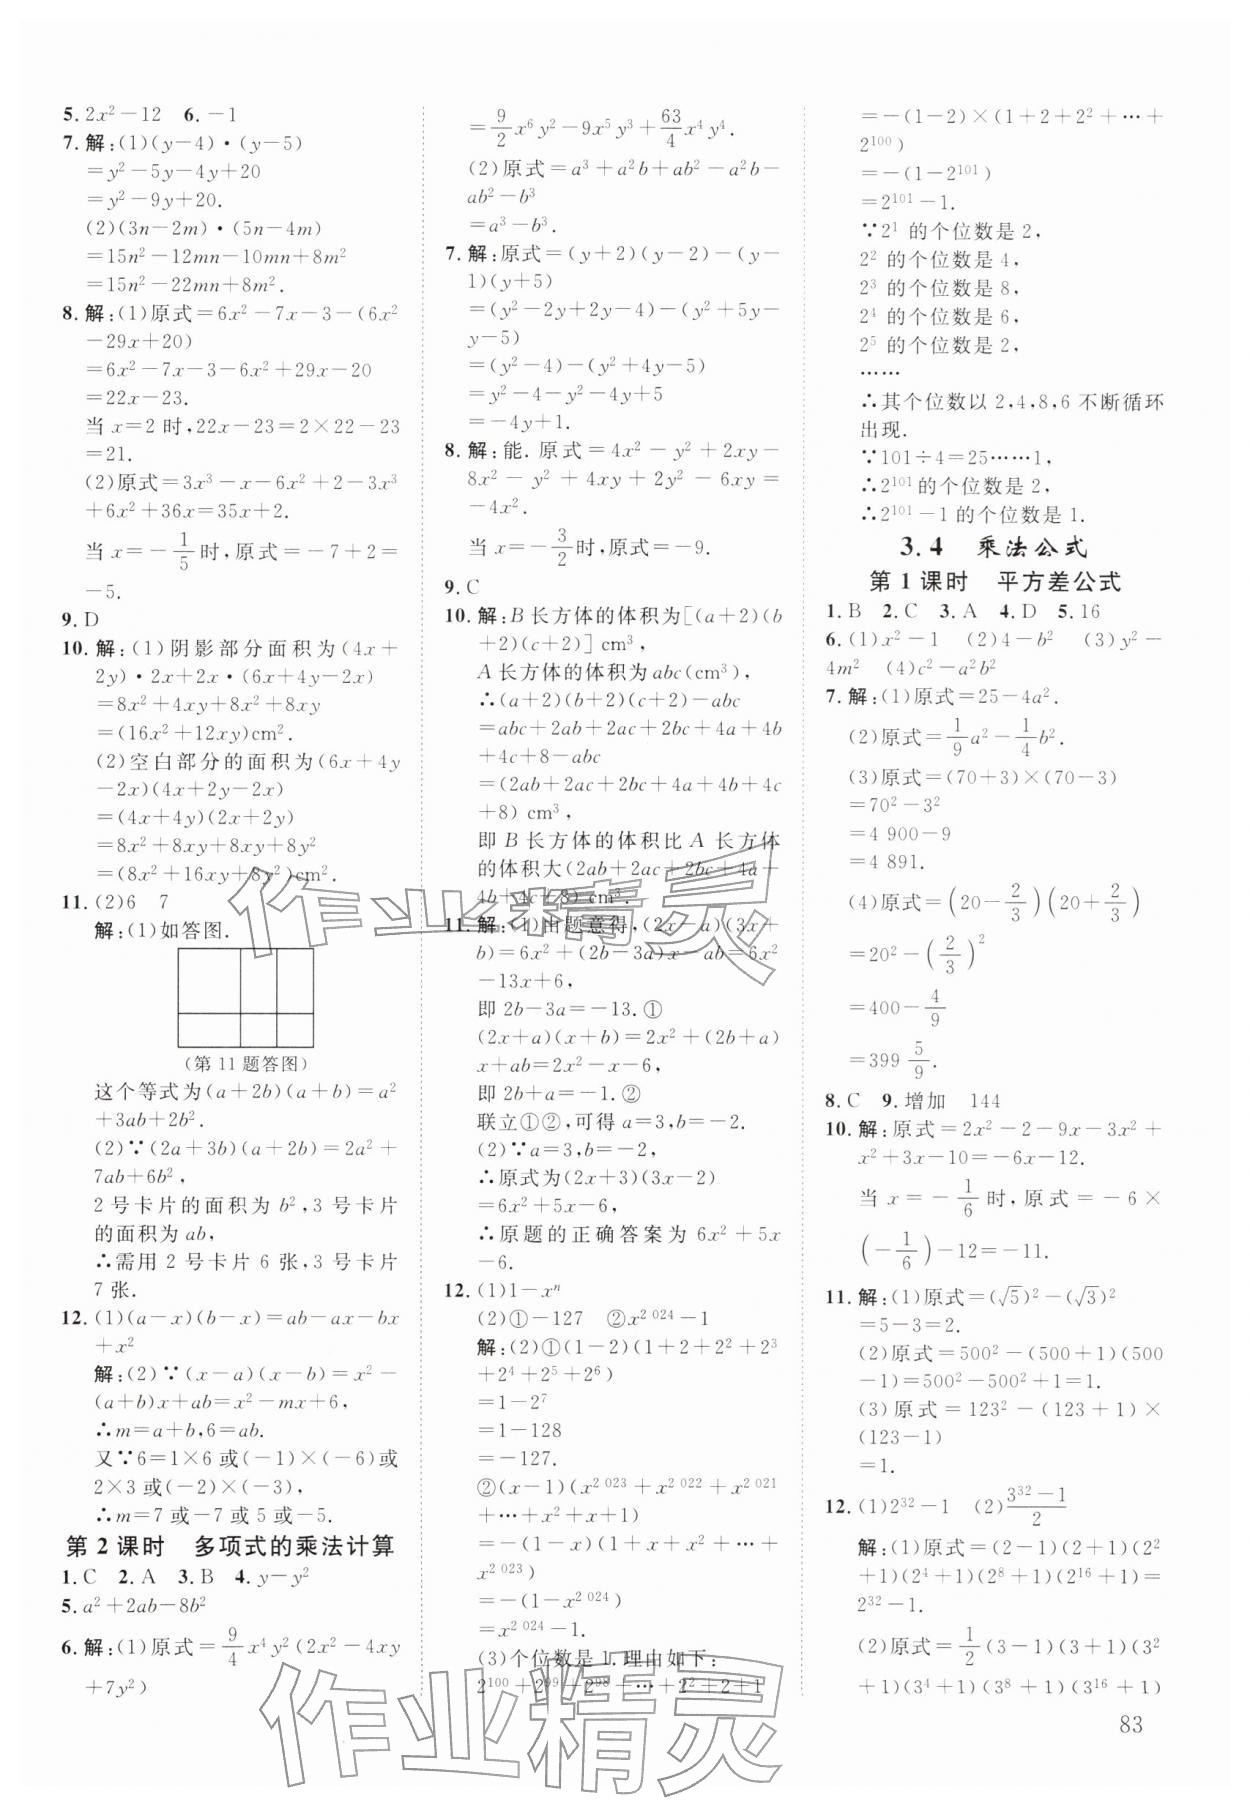 5. 2x²－12　6. －1
7. 解:(1)(y－4)·(y－5)
＝y²－5y－4y＋20
＝y²－9y＋20.
(2)(3n－2m)·(5n－4m)
＝15n²－12mn－10mn＋8m²
＝15n²－22mn＋8m².
8. 解:(1)原式＝6x²－7x－3－(6x²
－29x＋20)
＝6x²－7x－3－6x²＋29x－20
＝22x－23.
当 x＝2 时,22x－23＝2×22－23
＝21.
(2)原式＝3x³－x－6x²＋2－3x³
＋6x²＋36x＝35x＋2.
当 x＝－1/5 时,原式＝－7＋2＝
－5.
9. D
10. 解:(1)阴影部分面积为(4x＋
2y)·2x＋2x·(6x＋4y－2x)
＝8x²＋4xy＋8x²＋8xy
＝(16x²＋12xy)cm².
(2)空白部分的面积为(6x＋4y
－2x)(4x＋2y－2x)
＝(4x＋4y)(2x＋2y)
＝8x²＋8xy＋8xy＋8y²
＝(8x²＋16xy＋8y²)cm².
11. (2)6　7
解:(1)如答图.
(第 11 题答图)
这个等式为(a＋2b)(a＋b)＝a²
＋3ab＋2b².
(2)∵(2a＋3b)(a＋2b)＝2a²＋
7ab＋6b²,
2 号卡片的面积为 b²,3 号卡片
的面积为 ab,
∴需用 2 号卡片 6 张,3 号卡片
7 张.
12. (1)(a－x)(b－x)＝ab－ax－bx
＋x²
解:(2)∵(x－a)(x－b)＝x²－
(a＋b)x＋ab＝x²－mx＋6,
∴m＝a＋b,6＝ab.
又∵6＝1×6 或(－1)×(－6)或
2×3 或(－2)×(－3),
∴m＝7 或－7 或 5 或－5.
第 2 课时　多项式的乘法计算
1. C　2. A　3. B　4. y－y²
5. a²＋2ab－8b²
6. 解:(1)原式＝9/4 x⁴y²(2x²－4xy
＋7y²)
＝9/2 x⁶y²－9x⁵y³＋63/4 x⁴y⁴.
(2)原式＝a³＋a²b＋ab²－a²b－
ab²－b³
＝a³－b³.
7. 解:原式＝(y＋2)(y－2)－(y－
1)(y＋5)
＝(y²－2y＋2y－4)－(y²＋5y－
y－5)
＝(y²－4)－(y²＋4y－5)
＝y²－4－y²－4y＋5
＝－4y＋1.
8. 解:能. 原式＝4x²－y²＋2xy－
8x²－y²＋4xy＋2y²－6xy＝
－4x².
当 x＝－3/2 时,原式＝－9.
9. C
10. 解:B 长方体的体积为[(a＋2)(b
＋2)(c＋2)] cm³,
A 长方体的体积为 abc(cm³),
∴(a＋2)(b＋2)(c＋2)－abc
＝abc＋2ab＋2ac＋2bc＋4a＋4b
＋4c＋8－abc
＝(2ab＋2ac＋2bc＋4a＋4b＋4c
＋8) cm³,
即 B 长方体的体积比 A 长方体
的体积大(2ab＋2ac＋2bc＋4a＋
4b＋4c＋8) cm³.
11. 解:(1)由题意得,(2x－a)(3x＋
b)＝6x²＋(2b－3a)x－ab＝6x²
－13x＋6,
即 2b－3a＝－13.①
(2x＋a)(x＋b)＝2x²＋(2b＋a)
x＋ab＝2x²－x－6,
即 2b＋a＝－1. ②
联立①②,可得 a＝3,b＝－2.
(2)∵a＝3,b＝－2,
∴原式为(2x＋3)(3x－2)
＝6x²＋5x－6.
∴原题的正确答案为 6x²＋5x
－6.
12. (1)1－xⁿ
(2)①－127　②x^{2 024}－1
解:(2)①(1－2)(1＋2＋2²＋2³
＋2⁴＋2⁵＋2⁶)
＝1－2⁷
＝1－128
＝－127.
②(x－1)(x^{2 023}＋x^{2 022}＋x^{2 021}
＋…＋x＋1)
＝－(1－x)(1＋x＋x²＋…＋
x^{2 023})
＝－(1－x^{2 024})
＝x^{2 024}－1.
(3)个位数是 1.理由如下:
2^{100}＋2^{99}＋2^{98}＋…＋2²＋2＋1
＝－(1－2)×(1＋2＋2²＋…＋
2^{100})
＝－(1－2^{101})
＝2^{101}－1.
∵2¹ 的个位数是 2,
2² 的个位数是 4,
2³ 的个位数是 8,
2⁴ 的个位数是 6,
2⁵ 的个位数是 2,
……
∴其个位数以 2,4,8,6 不断循环
出现.
∵101÷4＝25……1,
∴2^{101}的个位数是 2,
∴2^{101}－1 的个位数是 1.
3.4　乘法公式
第 1 课时　平方差公式
1. B　2. C　3. A　4. D　5. 16
6. (1)x²－1　(2)4－b²　(3)y²－
4m²　(4)c²－a²b²
7. 解:(1)原式＝25－4a².
(2)原式＝1/9 a²－1/4 b².
(3)原式＝(70＋3)×(70－3)
＝70²－3²
＝4 900－9
＝4 891.
(4)原式＝(20－2/3)(20＋2/3)
＝20²－(2/3)²
＝400－4/9
＝399 5/9.
8. C　9. 增加　144
10. 解:原式＝2x²－2－9x－3x²＋
x²＋3x－10＝－6x－12.
当 x＝－1/6 时,原式＝－6×
(－1/6)－12＝－11.
11. 解:(1)原式＝(√5)²－(√3)²
＝5－3＝2.
(2)原式＝500²－(500＋1)(500
－1)＝500²－500²＋1＝1.
(3)原式＝123²－(123＋1)×
(123－1)
＝1.
12. (1)2³²－1　(2)(3³²－1)/2
解:(1)原式＝(2－1)(2＋1)(2²
＋1)(2⁴＋1)(2⁸＋1)(2¹⁶＋1)＝
2³²－1.
(2)原式＝1/2(3－1)(3＋1)(3²
＋1)(3⁴＋1)(3⁸＋1)(3¹⁶＋1)
83
作业精灵
作业精灵